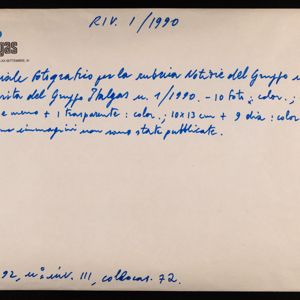 RIV. 1/1990
lgas
iale fotografico per la rubrica Notizie del Gruppo
del Gruppo Italgas n. 1/1990. - 10 foto : color. ;
e meno + 1 trasparente : color. ; 10x13 cm + 9 dia : color
immagini non sono state pubblicate.
92, n° inv. 111, collocaz. 72.